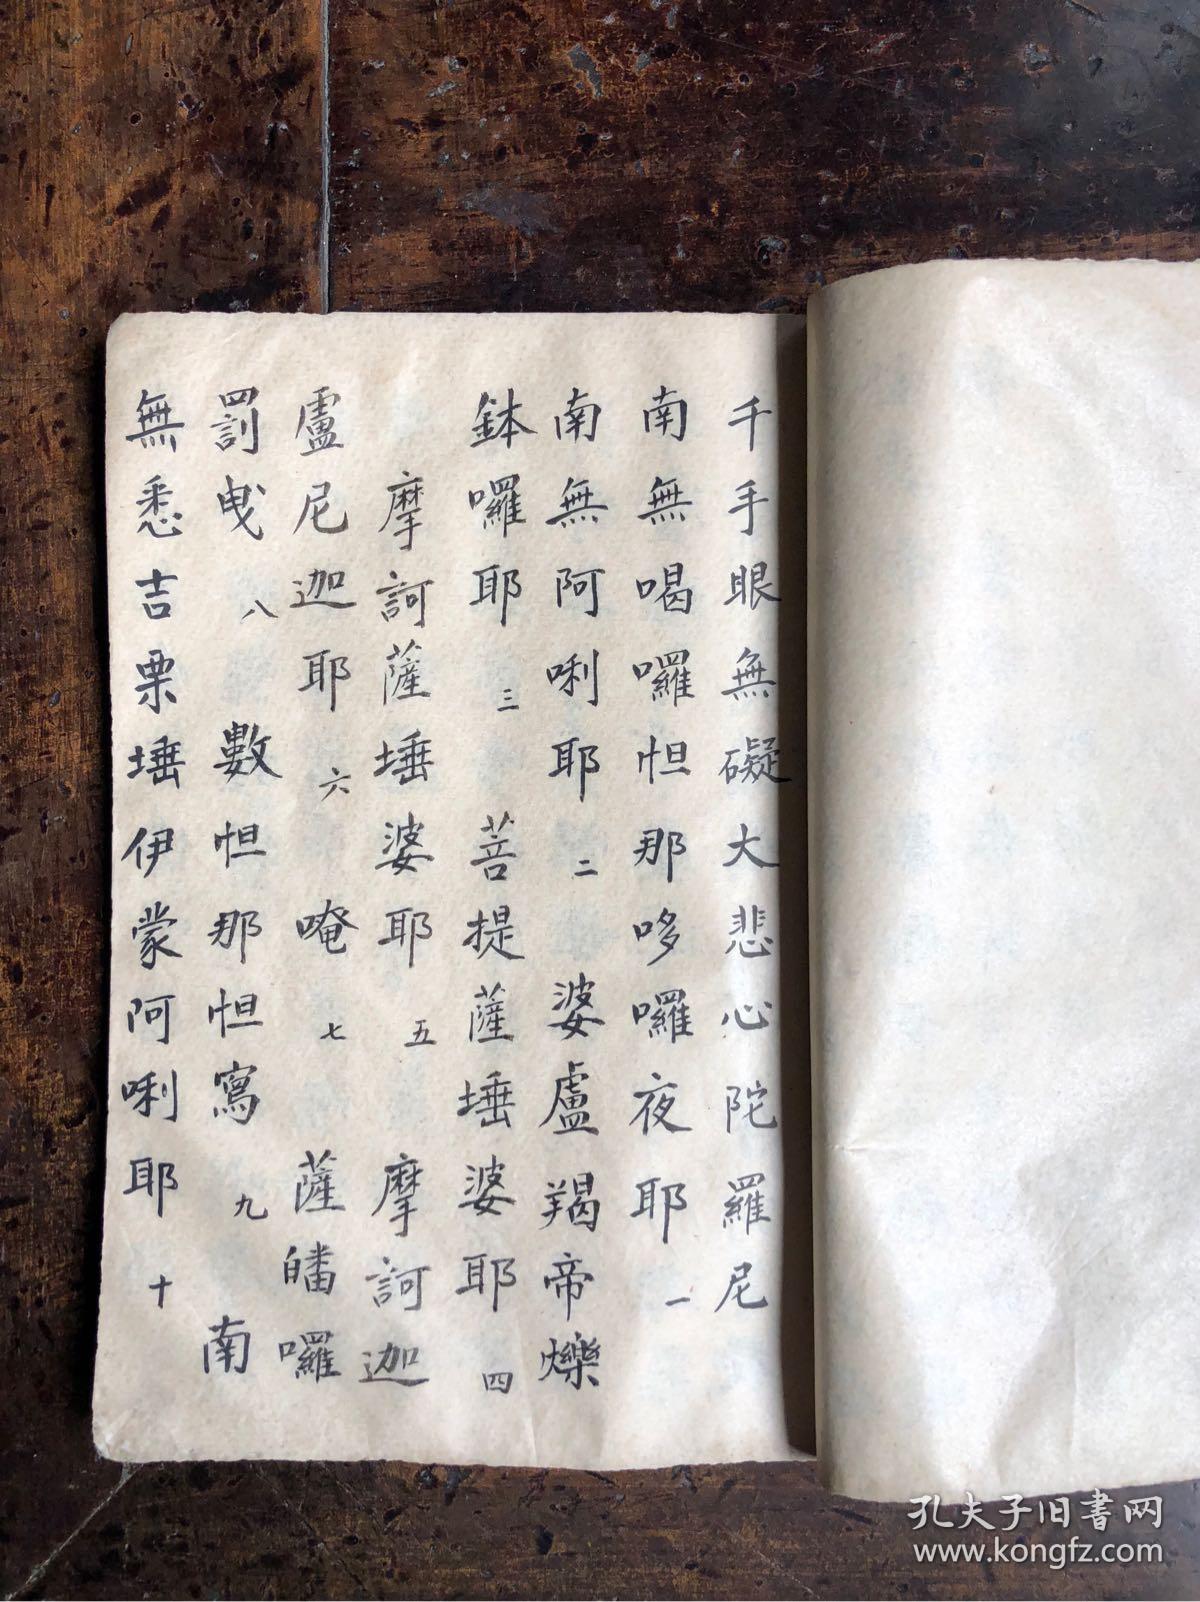 千手眼無礙大悲心陀羅尼
南無喝囉怛那哆囉夜耶 一
南無阿唎耶 二 婆盧羯帝爍
鉢囉耶 三 菩提薩埵婆耶 四
摩訶薩埵婆耶 五 摩訶迦
盧尼迦耶 六 唵 七 薩皤囉
罰曳 八 數怛那怛寫 九 南
無悉吉栗埵伊蒙阿唎耶 十
孔夫子旧书网
www.kongfz.com